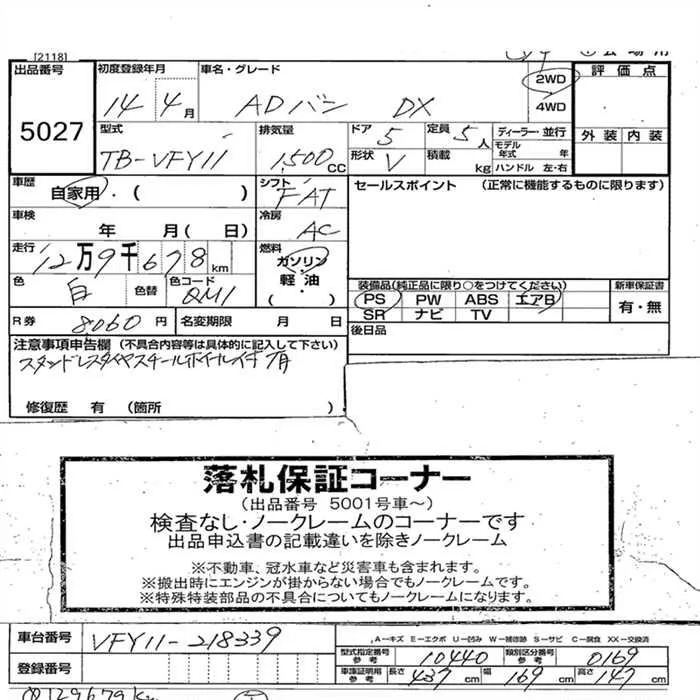 [2118]
出品番号 初度登録年月 車名・グレード 2WD 評価点
5027 14年 4月 ADバン DX 4WD
型式 排気量 ドア 定員 ディーラー・並行 外装 内装
TB-VFY11 1,500CC 5 5人 モデル年式 年
形状 V 積載 kg ハンドル 左・右
車歴 自家用・( ) シフト FAT セールスポイント (正常に機能するものに限ります)
車検 年 月( 日) 冷房 AC
走行 12万9千678km 燃料 ガソリン
軽油
( )
色 白 色替 色コード QM1
装備品(純正品に限り○をつけてください) 新車保証書
PS PW ABS エアB 有・無
SR ナビ TV
R券 8,060円 名変期限 月 日 後日品
注意事項申告欄 (不具合内容等は具体的に記入して下さい)
修復歴 有 (箇所 )
落札保証コーナー
(出品番号 5001号車~)
検査なし・ノークレームのコーナーです
出品申込書の記載違いを除きノークレーム
※不動車、冠水車など災害車も含まれます。
※搬出時にエンジンが掛からない場合でもノークレームです。
※特殊特装部品の不具合についてもノークレームになります。
車台番号 VFY11-218339
A-キズ E-エクボ U-凹み W-補修跡 S-サビ C-腐食 XX-交換済
型式指定番号 参考 10440 類別区分番号 参考 0169
登録番号 車庫証明用 参考 長さ 437cm 幅 169cm 高さ 147cm